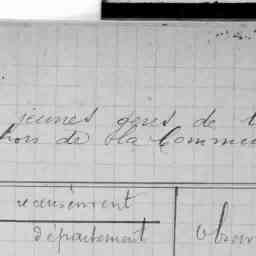 jeunes gens de
hors de la Commu
recensement
département
obser